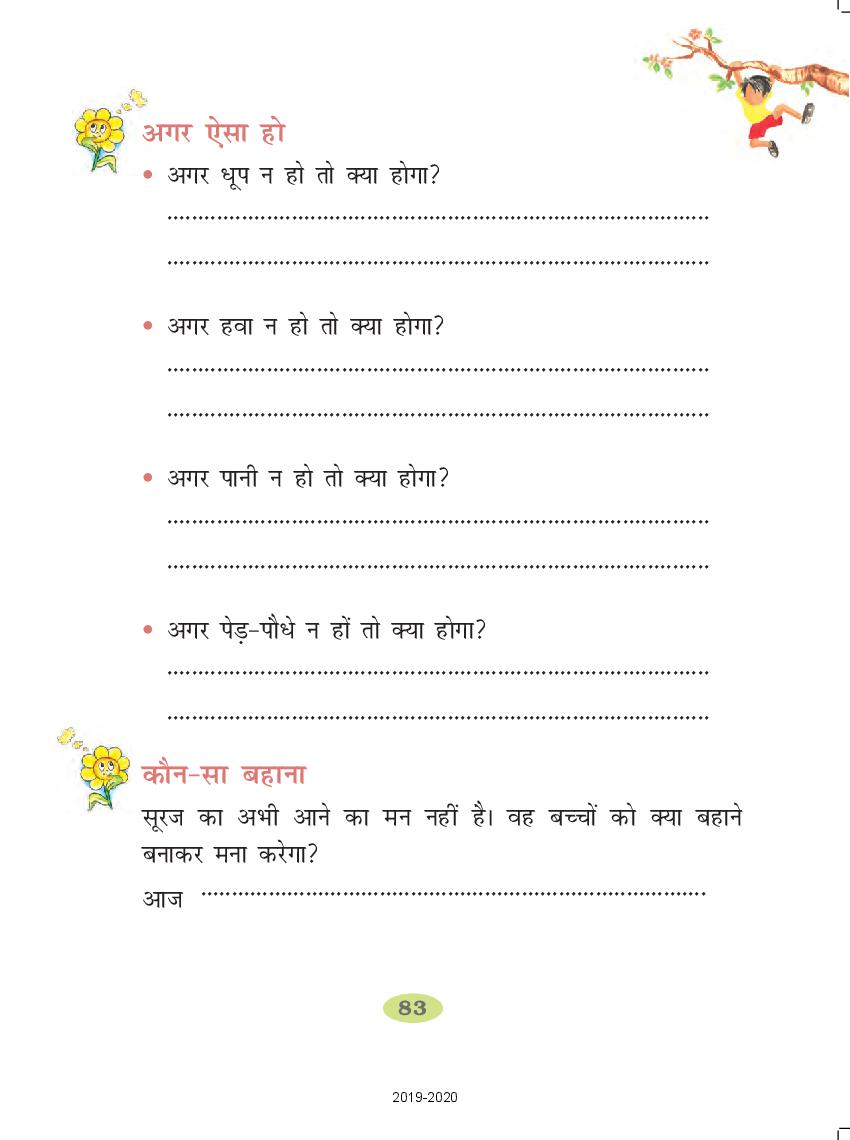 अगर ऐसा हो
• अगर धूप न हो तो क्या होगा?
................................................................................
................................................................................
• अगर हवा न हो तो क्या होगा?
................................................................................
................................................................................
• अगर पानी न हो तो क्या होगा?
................................................................................
................................................................................
• अगर पेड़-पौधे न हों तो क्या होगा?
................................................................................
................................................................................
कौन-सा बहाना
सूरज का अभी आने का मन नहीं है। वह बच्चों को क्या बहाने
बनाकर मना करेगा?
आज ................................................................................
83
2019-2020